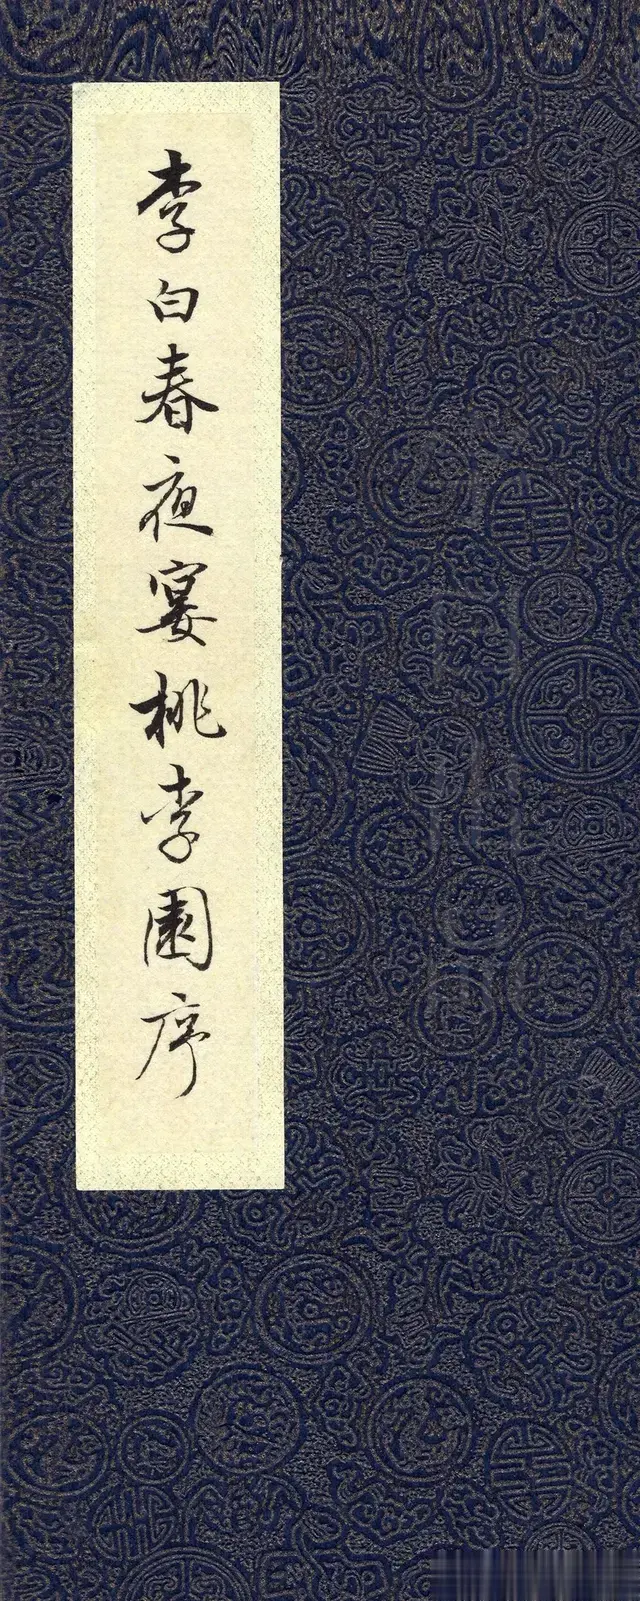 李白春夜宴桃李園序